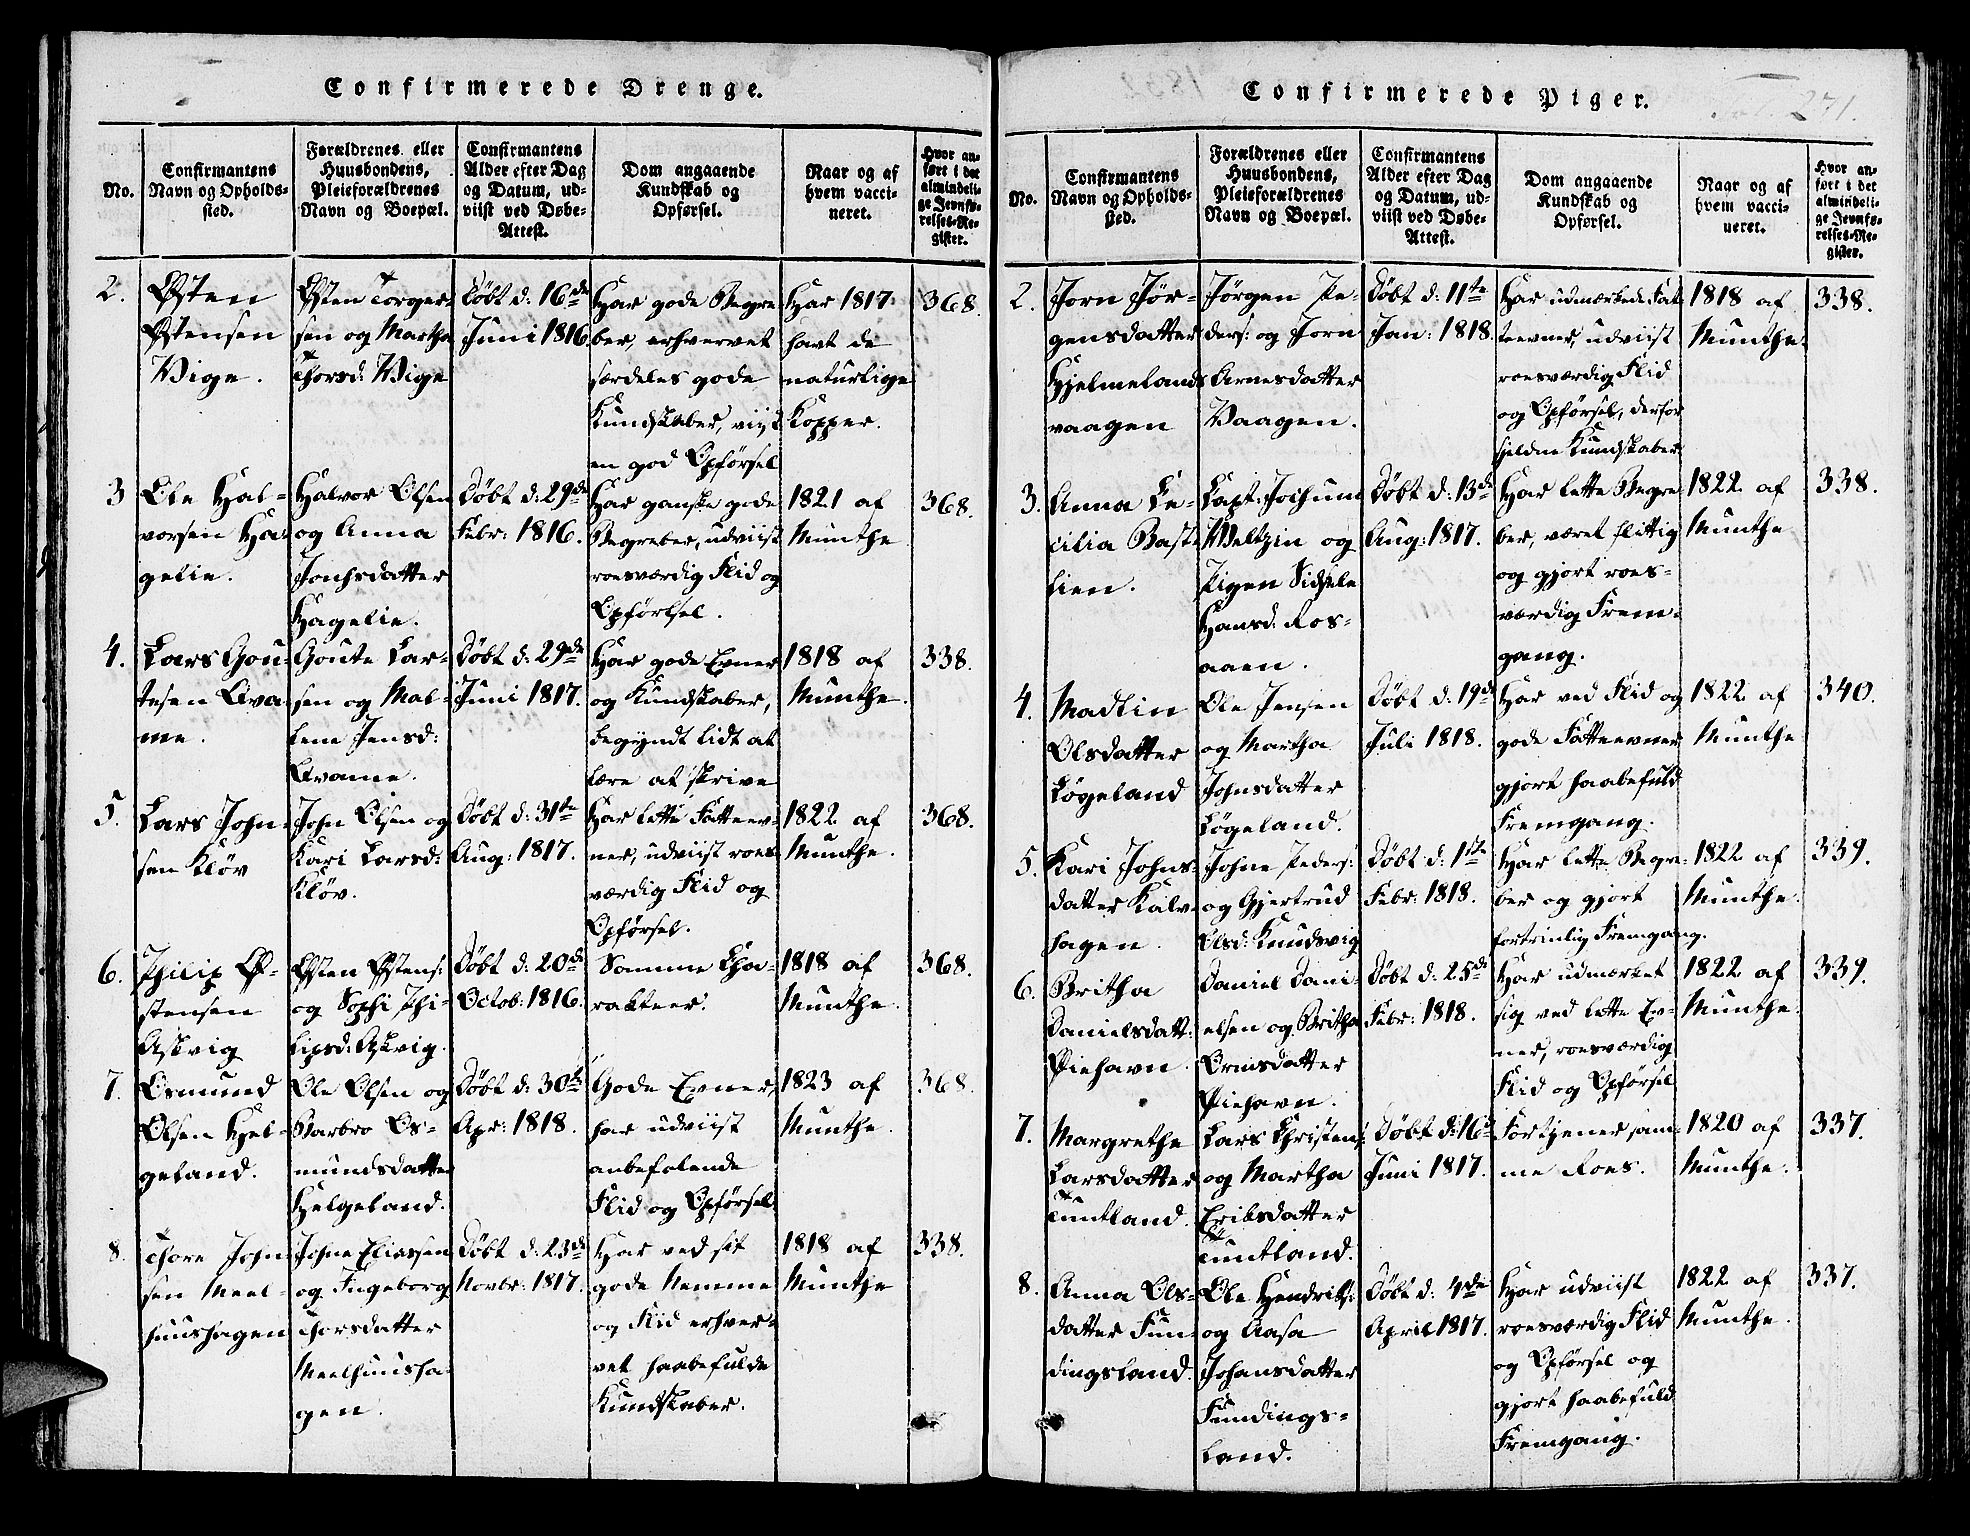 Confirmerede Drenge.
No.
Confirmantens
Navn og Opholds-
sted.
Forældrenes eller
Huusbondens,
Pleieforældrenes
Navn og Boepæl.
Confirmantens
Alder efter Dag
og Datum, ud-
viist ved Døbe-
Attest.
Dom angaaende
Kundskab og
Opførsel.
Naar og af
hvem vacci-
neret.
Hvor an-
ført i det
almindeli-
ge Jevnfø-
relses-Re-
gister.
2.
Østen
Østensen
Wige.
Østen Torger-
sen og Martha
Thorsd: Wige
Døbt d: 16de
Juni 1816.
Har gode Begre-
ber, erhvervet
særdeles gode
Kundskaber, viist
en god Opførsel
Har 1817
havt de
naturlige
Kopper.
368.
3
Ole Hal-
vorsen Ha-
gelie.
Halvor Olsen
og Anna
Jonhsdatter
Hagelie.
Døbt d: 29de
Febr: 1816.
Har ganske gode
Begreber, udviist
roesværdig Flid og
Opførlsel.
1821 af
Munthe
368.
4.
Lars Gou-
tesen Qva-
me.
Goute Lar-
sen og Mal-
lene Jensd:
Qvame.
Døbt d: 29de
Juni 1817.
Har gode Evner
og Kundskaber,
begyndt lidt at
lære at skrive
1818 af
Munthe.
338.
5.
Lars John-
sen Kløv
John Olsen og
Kari Larsd:
Kløv.
Døbt d: 31te
Aug: 1817.
Har lette Fatteev-
ner, udviist roes-
værdig Flid og
Opførsel.
1822 af
Munthe.
368.
6.
Philip Ø-
stensen
Askvig
Østen Østens:
og Sophi Phi-
lipsd: Askvig.
Døbt d: 20de
Octob: 1816.
Samme Cha-
rakteer.
1818 af
Munthe.
368.
7.
Osmund
Olsen Hel-
geland.
Ole Olsen og
Barbro Os-
mundsdatter
Helgeland.
Døbt d: 30te
Apr: 1818.
Gode Evner,
har udviist
anbefalende
Flid og Opførsel
1823 af
Munthe.
368.
8.
Thore John-
sen Meel-
huushagen
Johne Eliassen
og Ingeborg
Thorsdatter
Meelhuusha-
gen.
Døbt d: 23de
Novbr: 1817.
Har ved sit
gode Nemme
og Flid erhver-
vet haabefulde
Kundskaber.
1818 af
Munthe
338.
Confirmerede Piger.
271.
No.
Confirmantens
Navn og Opholds-
sted.
Forældrenes eller
Huusbondens,
Pleieforældrenes
Navn og Boepæl.
Confirmantens
Alder efter Dag
og Datum, ud-
viist ved Døbe-
Attest.
Dom angaaende
Kundskab og
Opførsel.
Naar og af
hvem vacci-
neret.
Hvor an-
ført i det
almindeli-
ge Jevnfø-
relses-Re-
gister.
2.
Jorn Jør-
gensdatter
Hjelmelands
vaagen
Jørgen Pe-
ders: og Jorn
Arnesdatter
Vaagen.
Døbt d: 11te
Jan: 1818.
Har udmærkede Fat-
teevner, udviist
roesværdig Flid
og Opførsel, derfor
sjeldne Kundskaber
1818 af
Munthe.
338.
3.
Anna Ce-
cilia Bast-
lien.
Capt: Jochum
Weltzin og
Pigen Sidsele
Hansd: Ros-
aaen.
Døbt d: 13de
Aug: 1817.
Har lette Begre-
ber, været flittig
og gjort roes-
værdig Frem-
gang.
1822 af
Munthe
338.
4.
Madlin
Olsdatter
Løgeland
Ole Jensen
og Martha
Johnsdatter
Løgeland.
Døbt d: 19de
Juli 1818.
Har ved Flid og
gode Fatteevner
gjort haabefuld
Fremgang.
1822 af
Munthe
340.
5.
Kari Johns-
datter Kalv-
hagen.
Johne Peders:
og Gjertrud
Olsd: Knudsvig
Døbt d: 1ste
Febr: 1818.
Har lette Begre-
ber og gjort
fortrinlig Fremgang.
1822 af
Munthe.
339.
6.
Britha
Danielsdatt:
Piehavn.
Daniel Dani-
elsen og Britha
Ormsdatter
Piehavn.
Døbt d: 25de
Febr: 1818.
Har udmærket
sig ved lette Ev-
ner, roesværdig
Flid og Opførsel
1822 af
Munthe.
339.
7.
Margrethe
Larsdatter
Tuntland.
Lars Christens:
og Martha
Eriksdatter
Tuntland.
Døbt d: 16de
Juni 1817.
Fortjener sam-
me Roes.
1820 af
Munthe.
337.
8.
Anna Ols-
datter Fun-
dingsland.
Ole Hendriks:
og Aasa
Johansdatter
Fundings-
land.
Døbt d: 4de
April 1817.
Har udviist
roesværdig Flid
og Opførsel og
gjort haabefuld
Fremgang.
1822 af
Munthe.
337.